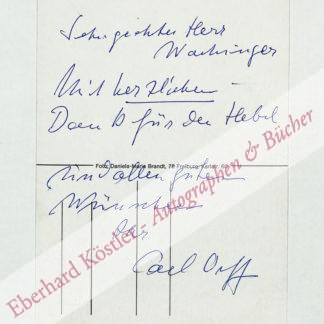 Sehr geehrter Herr
Wachinger
Mit herzlichem
Dank für den Hebel
Foto Daniela-Maria Brandt, 78 Freiburg
und allen guten
Wünschen
Ihr
Carl Orff
Eberhard Köstler - Autographen & Bücher